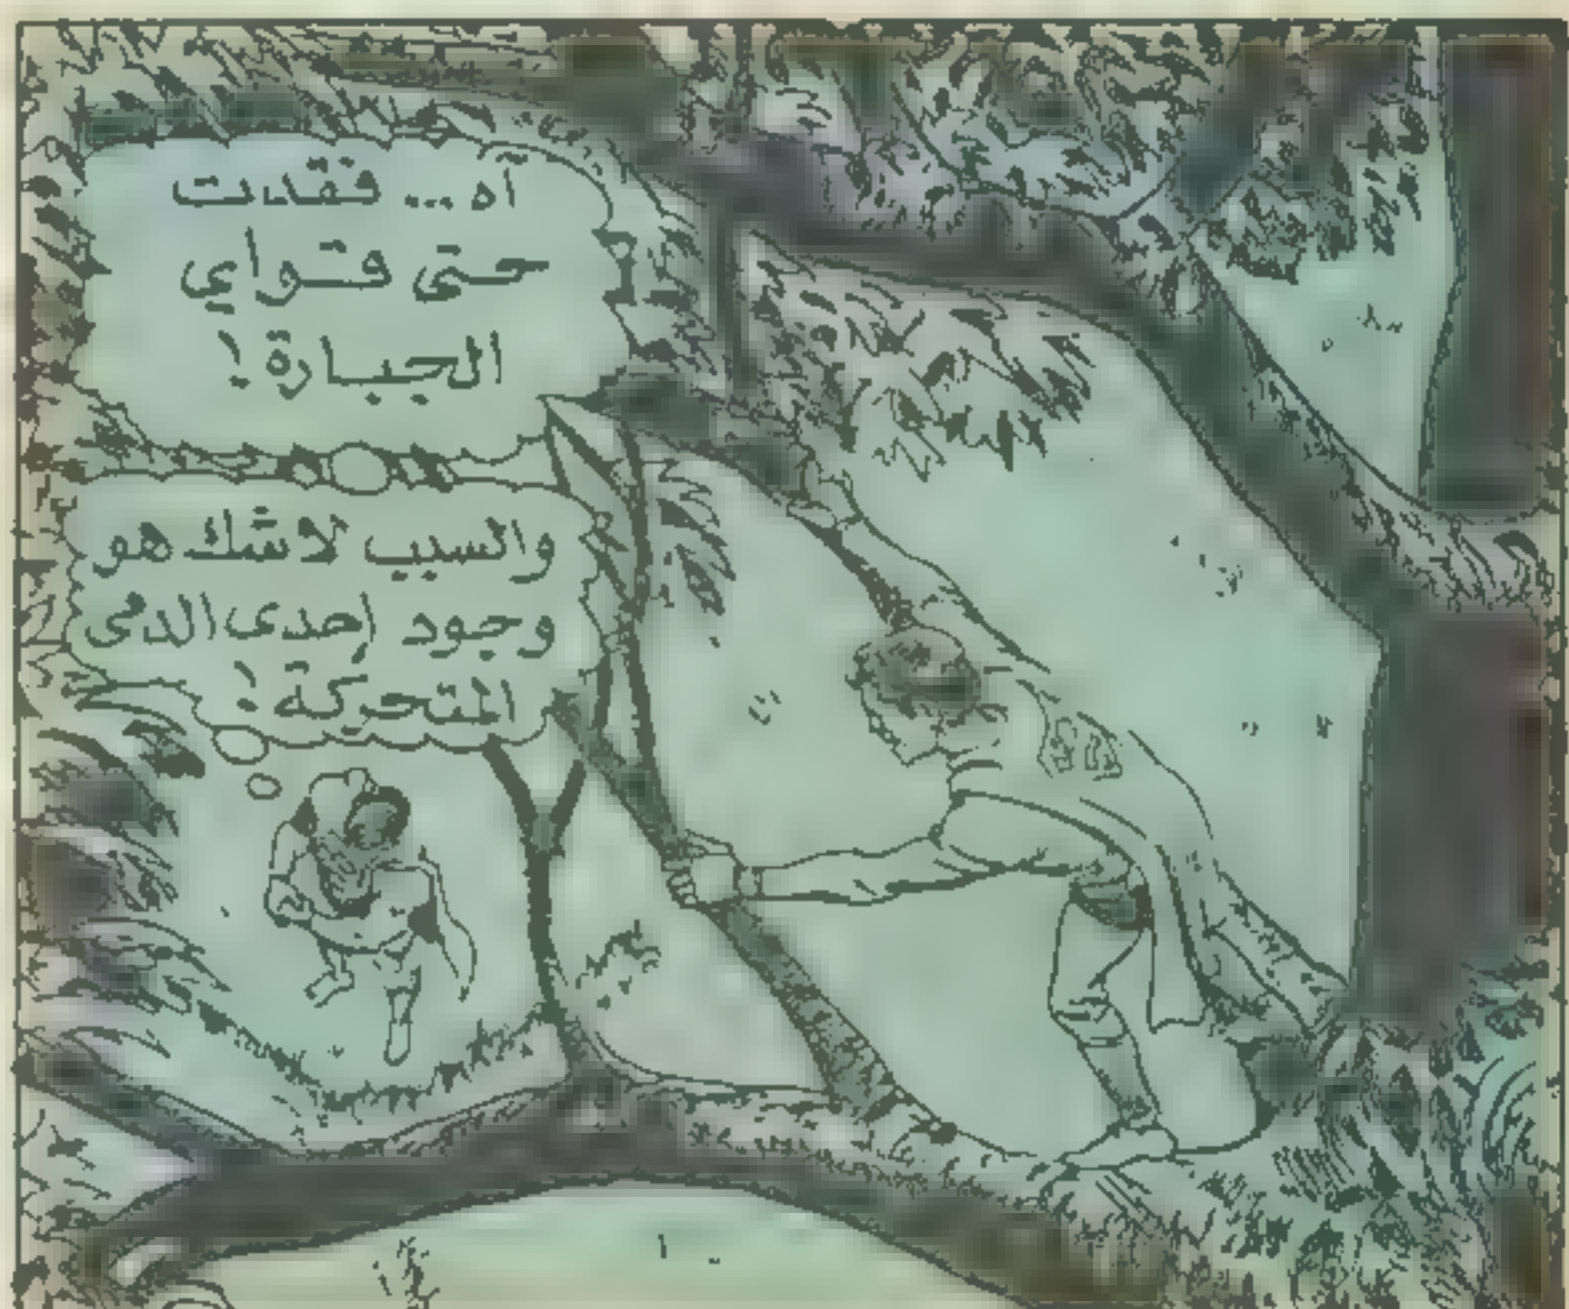 آه... فقدت
حتى قواي
الجبارة!
والسبب لاشك هو
وجود إحدى الدمى
المتحركة!